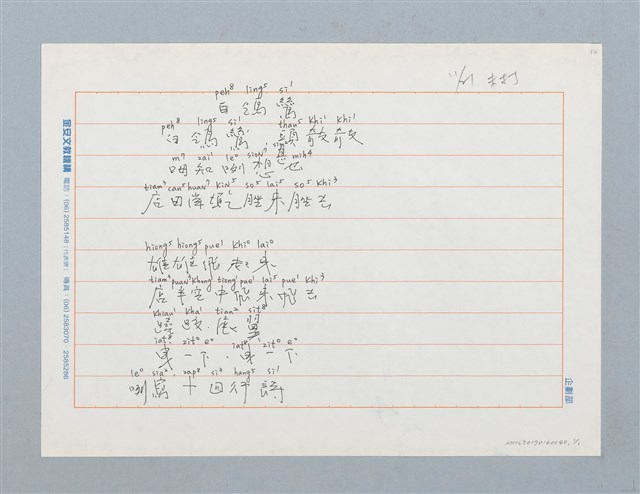 11/21 未打
peh⁸ ling⁵ si¹
白鴒鷥
peh⁸ ling⁵ si¹ thau⁵ khi¹ khi¹
白鴒鷥 頭敧敧
m⁷ zai¹ le⁰ siōn⁷ sim² mih⁴
毋知咧想 也
tiam³ can⁵ huan⁷ kiN⁵ so⁵ lai⁵ so⁵ khi³
店田岸 趖來趖去
hiong⁵ hiong⁵ pue¹ khi⁰ lai⁰
雄雄飛起來
tiam³ puan³ khong¹ tiong¹ pue¹ lai⁵ pue¹ khi³
店半空中飛來飛去
khiau¹ kha¹ tian² sit⁸
蹺跤.展翼
iat⁸ zit⁰ e⁰ iat⁸ zit⁰ e⁰
曳一下.曳一下
le⁰ sia² zap⁸ si³ hang⁵ si¹
咧寫十四行詩
金安文教機構 電話:(06)2565148(代表號) 傳真:(06)2583070・2585286
企劃部